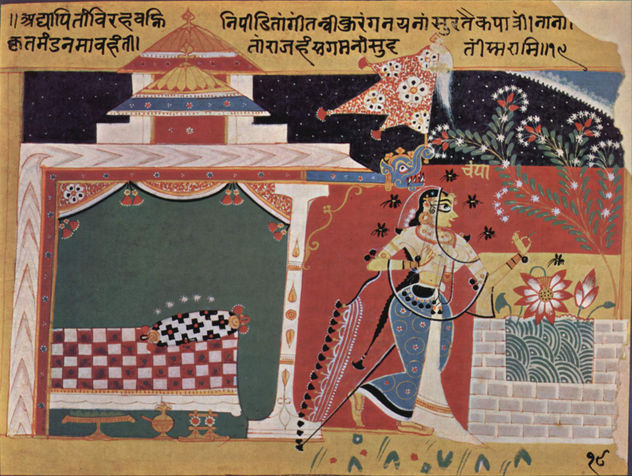 ॥अद्यापितांविरहवह्नि निपीडितांगीतन्वीकुरंगनयनांसुरतैकपात्रीं।नाना।
कृतमंडनमावहंतीं॥ तांराजहंसगमनांसुद तींस्मरामि॥१९
चंपा
१८